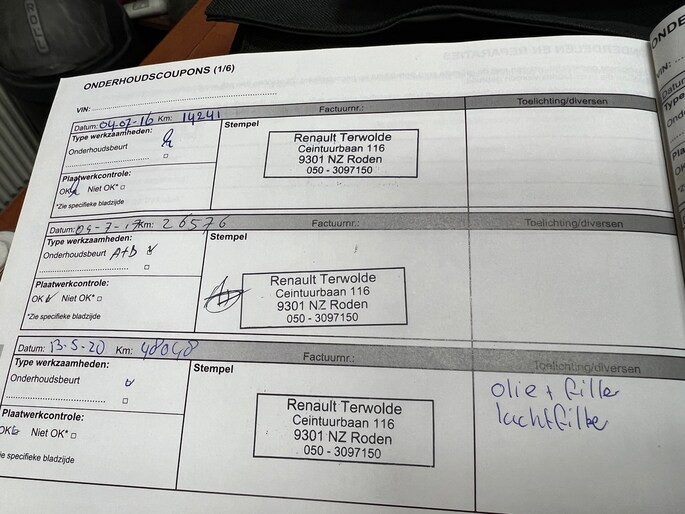 ONDERHOUDSCOUPONS (1/6)
VIN:
Datum: 04-07-16 Km: 14241 Factuurnr.: Toelichting/diversen
Type werkzaamheden: Stempel
Onderhoudsbeurt
Plaatwerkcontrole:
OK Niet OK*
*Zie specifieke bladzijde
Renault Terwolde
Ceintuurbaan 116
9301 NZ Roden
050 - 3097150
Datum: 04-7-17 Km: 26576 Factuurnr.: Toelichting/diversen
Type werkzaamheden: Stempel
Onderhoudsbeurt A+b
Plaatwerkcontrole:
OK Niet OK*
*Zie specifieke bladzijde
Renault Terwolde
Ceintuurbaan 116
9301 NZ Roden
050 - 3097150
Datum: 13-5-20 Km: 48048 Factuurnr.: Toelichting/diversen
Type werkzaamheden: Stempel
Onderhoudsbeurt
Plaatwerkcontrole:
OK Niet OK*
ie specifieke bladzijde
Renault Terwolde
Ceintuurbaan 116
9301 NZ Roden
050 - 3097150
olie + filter
luchtfilter